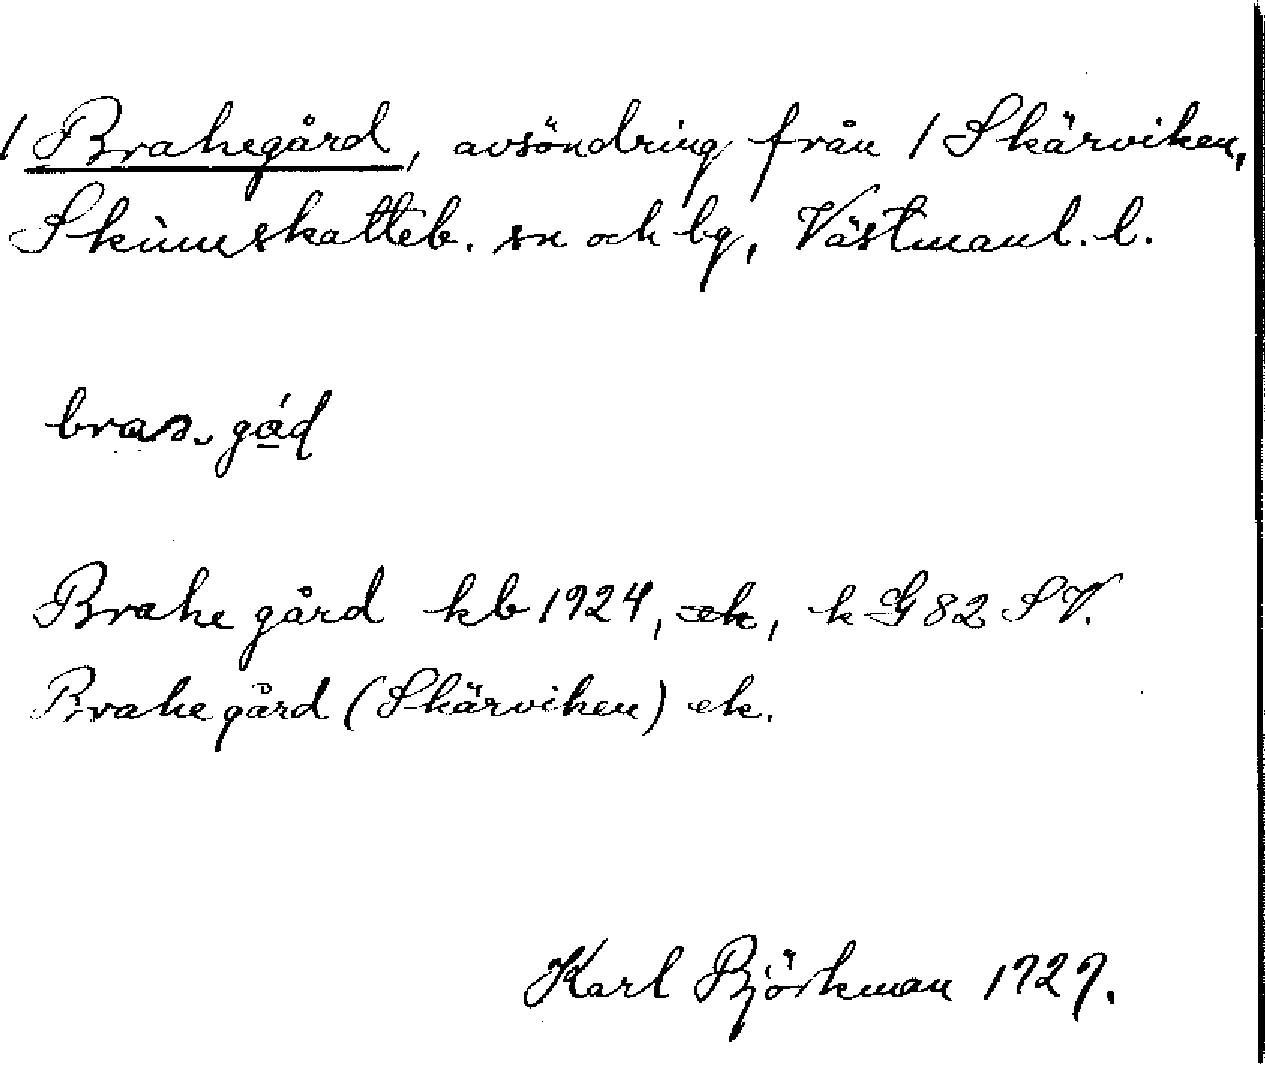 / Brahegård, avsöndring från / Skärviken,
Skinnskatteb. sn och bg, Västmanl. l.
Brahegård kb 1924, ek, k G 82 SV.
Brahegård (Skärviken) ek.
Karl Björkman 1929.